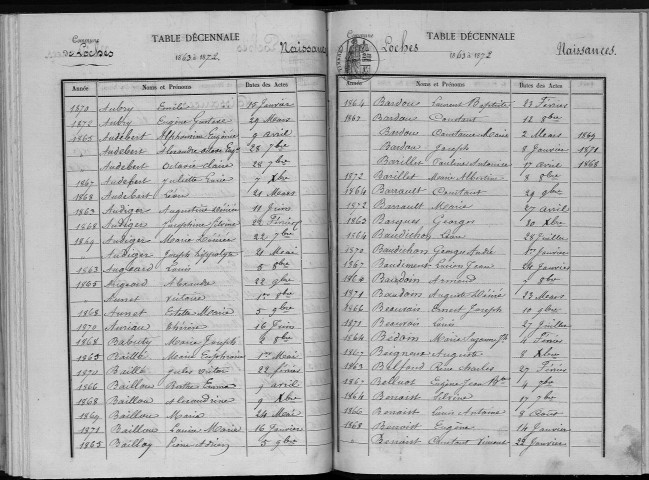 Commune
de Loches
TABLE DÉCENNALE
1863 à 1872
Naissances
Année Noms et Prénoms Dates des Actes
1870 Aubry Emile 15 Janvier
1872 Aubry Eugène 29 Mars
1865 Audebert Alphonsine Eugénie 9 avril
Audebert Alexandre 28 7bre
Audebert Octavie Claire 28 7bre
1867 Audebert Juliette 7 Xbre
1868 Audebert Léon 21 Mars
1863 Audiger Augustine
1868 Audiger Joséphine
1869 Audiger Marie Louise 22 7bre
Audiger Joseph Hippolyte 21 Mai
1863 Augeard Louis 5 8bre
1865 Alexandre 22 9bre
Aunet Victoire 1er 8bre
1868 Aunet Estelle Marie 5 9bre
1870 16
1868 Babuty Marie Joseph 9 8bre
1865 Baillé Marie 1er Mai
1870 Baillé Jules Victor 22 février
1866 Baillou Berthe Emma 9 avril
1868 Baillou Alexandrine 9 Xbre
1869 Baillou Maria 24 Mai
1871 Baillou Louise Marie 16 Janvier
1865 Baillou 5 9bre
Commune
Loches
TABLE DÉCENNALE
1863 à 1872
Naissances.
Année Noms et Prénoms Dates des Actes
1864 Bardou Baptiste 23 Février
1867 Bardou Constant 12 8bre
Bardou Constance Marie 2 Mars 1869
Bardou Joseph 8 Janvier 1871
Barillet Pauline Antoinette 17 avril 1868
1872 Barillet Marie Albertine 8 8bre
1866 Barrault Constant 29 9bre
1872 Barrault Marie 27 avril
1863 Basques Georges 10 Xbre
1864 Baudichon Léon 28 Juillet
1870 Baudichon Georges André Janvier
1867 Baudement Lucien Jean 24 Janvier
1864 Baudoin Armand 8bre
1871 Baudoin Auguste Désiré 23 Mars
1866 Beauvais Ernest Joseph 10 9bre
1871 Beauvais Louis 27 Juillet
1864 Bedom Marie Suzanne 4 Février
1867 Beigneux Auguste 8 Xbre
1863 Belfond René Charles 27 Février
1867 Belluot Eugène Jean 4 7bre
1864 Benoist 17 7bre
1866 Benoist Louis Antoine 8 Août
1868 Benoist Eugène 14 Janvier
Benoist Constant 23 Janvier